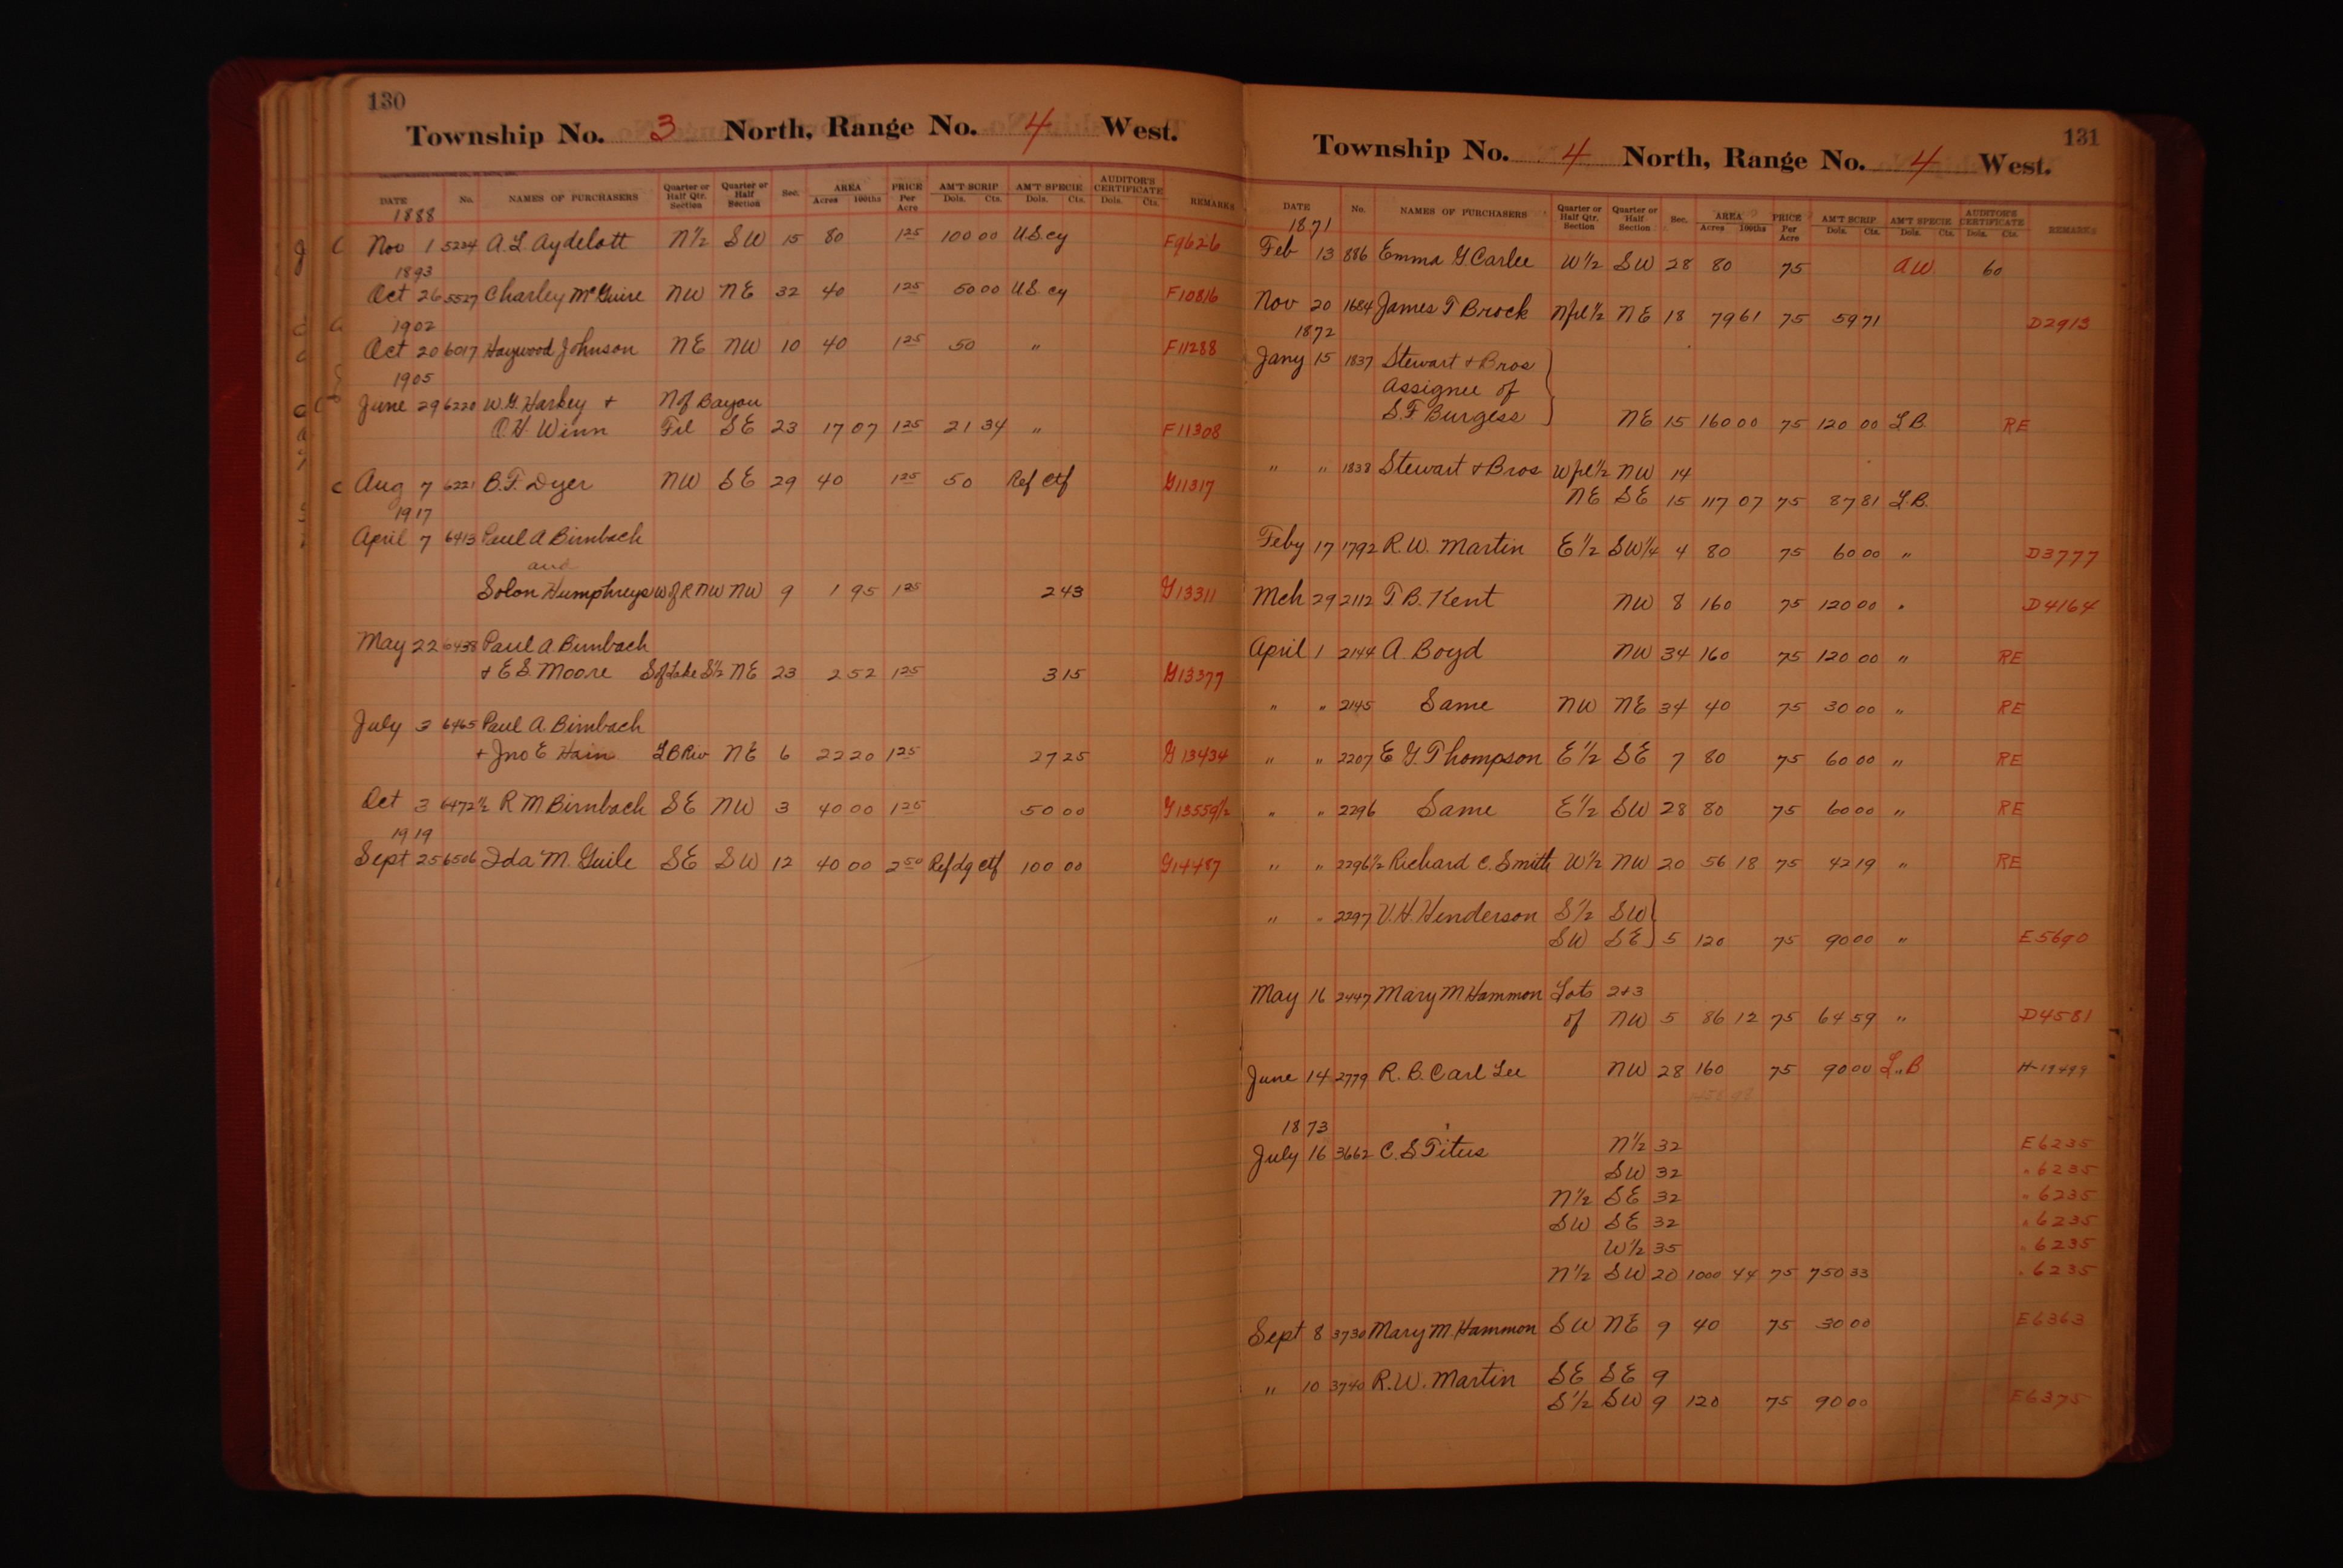 130
Township No. 3 North, Range No. 4 West.
DATE No. NAMES OF PURCHASERS Quarter or Half Qtr. Section Quarter or Half Section Sec. AREA Acres 100ths PRICE Per Acre AM'T SCRIP Dols. Cts. AM'T SPECIE Dols. Cts. AUDITOR'S CERTIFICATE Dols. Cts. REMARKS
1888
Nov 1 5234 A. L. Aydelott N½ SW 15 80 1 25 100 00 U.S. cy F9626
1893
Oct 26 5527 Charley McGuire NW NE 32 40 1 25 50 00 U.S. cy F10816
1902
Oct 20 6017 Haywood Johnson NE NW 10 40 1 25 50 " F11288
1905
June 29 6220 W. G. Harkey + N of Bayou
O. H. Winn Frl SE 23 17 07 1 25 21 34 " F11308
Aug 7 6221 B. F. Dyer NW SE 29 40 1 25 50 Ref Ctf G11317
1917
April 7 6413 Paul A Birnbach
and
Solon Humphreys W of R NW NW 9 1 95 1 25 2 43 G13311
May 22 6438 Paul A. Birnbach
+ E S. Moore S of Lake S½ NE 23 2 52 1 25 3 15 G13377
July 3 6465 Paul A. Birnbach
+ Jno E Hain LB Riv NE 6 22 20 1 25 27 25 G13434
Oct 3 6472½ R M Birnbach SE NW 3 40 00 1 25 50 00 G13559½
1919
Sept 25 6506 Ida M. Guile SE SW 12 40 00 2 50 Refdg Ctf 100 00 G14487
131
Township No. 4 North, Range No. 4 West.
DATE No. NAMES OF PURCHASERS Quarter or Half Qtr. Section Quarter or Half Section Sec. AREA Acres 100ths PRICE Per Acre AM'T SCRIP Dols. Cts. AM'T SPECIE Dols. Cts. AUDITOR'S CERTIFICATE Dols. Cts. REMARKS
1871
Feb 13 886 Emma G. Carlee W½ SW 28 80 75 AW 60
Nov 20 1684 James T Brock N frl ½ NE 18 79 61 75 59 71 D2913
1872
Jany 15 1837 Stewart + Bros
Assignee of
S. F Burgess NE 15 160 00 75 120 00 L.B. RE
" " 1838 Stewart + Bros W frl ½ NW 14
NE SE 15 117 07 75 87 81 L.B.
Feby 17 1792 R. W. Martin E½ SW¼ 4 80 75 60 00 " D3777
Mch 29 2112 T. B. Kent NW 8 160 75 120 00 " D4164
April 1 2144 A Boyd NW 34 160 75 120 00 " RE
" " 2145 Same NW NE 34 40 75 30 00 " RE
" " 2207 E G. Thompson E½ SE 7 80 75 60 00 " RE
" " 2296 Same E½ SW 28 80 75 60 00 " RE
" " 2296½ Richard C. Smith W½ NW 20 56 18 75 42 19 " RE
" " 2297 V. H. Henderson S½ SW
SW SE 5 120 75 90 00 " E5690
May 16 2447 Mary M Hammon Lots 2+3
of NW 5 86 12 75 64 59 " D4581
June 14 2779 R. B. Carl Lee NW 28 160 75 90 00 L.B H-19499
1873
July 16 3662 C. S Titus N½ 32 E6235
SW 32 " 6235
N½ SE 32 " 6235
SW SE 32 " 6235
W½ 35 " 6235
N½ SW 20 1000 44 75 750 33 " 6235
Sept 8 3730 Mary M. Hammon SW NE 9 40 75 30 00 E6363
" 10 3740 R. W. Martin SE SE 9
S½ SW 9 120 75 90 00 E6375